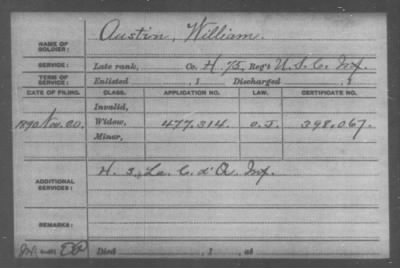 Austin, William.
NAME OF SOLDIER:
SERVICE: Late rank, Co. H, 75, Reg't U.S.C. Inf.
TERM OF SERVICE: Enlisted , 1 Discharged , 1
DATE OF FILING. CLASS. APPLICATION NO. LAW. CERTIFICATE NO.
Invalid,
1890 Nov. 20. Widow, 477.314. O.J. 398.067.
Minor,
ADDITIONAL SERVICES: H. 3, La. C. d' A. Inf.
REMARKS:
Died , 1 , at